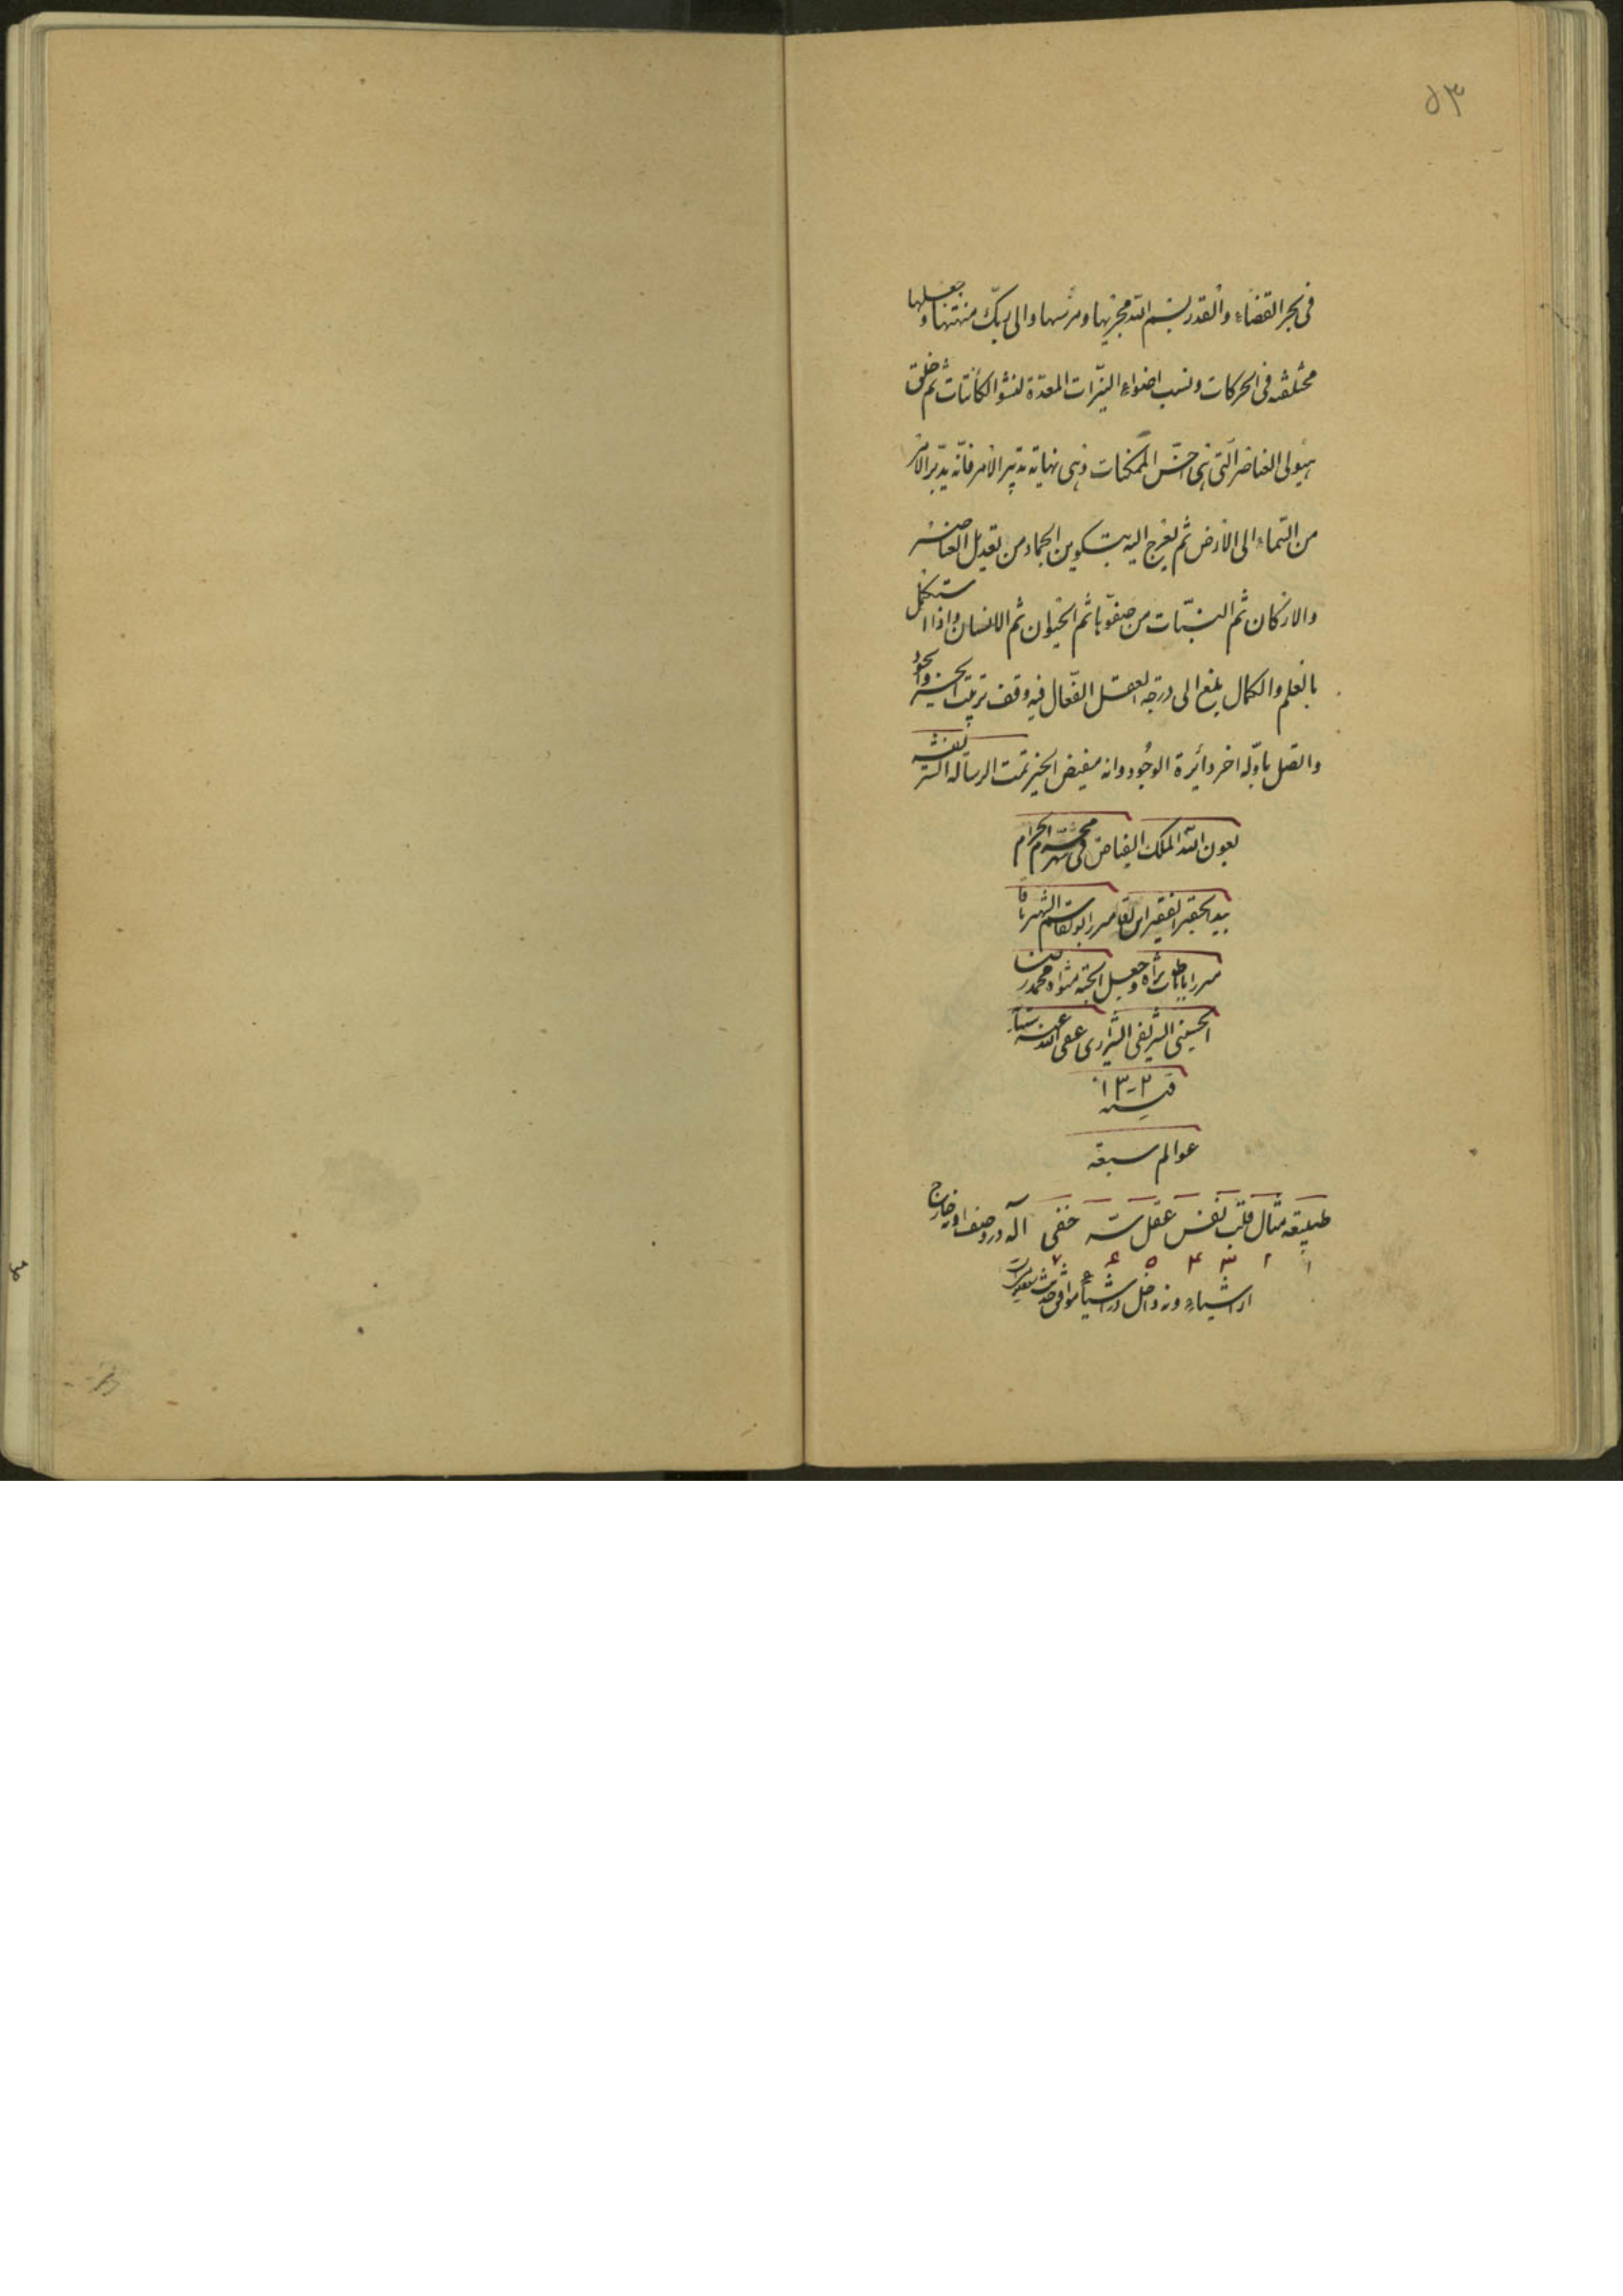 ۵۳
فی بحر القضاء والقدر بسم الله مجریها ومرسها والی ربک منتهها وجعلها
مختلفه فی الحرکات ونسب اضواء النیّرات المعدّة لنشو الکائنات ثم خلق
هیولی العناصر التی هی اخسّ الممکنات وهی نهایة تدبیر الامر فانّه یدبّر الامر
من السّماء الی الارض ثم یعرج الیه بتکوین الجماد من تعدیل العناصر
والارکان ثم النبّات من صفوّها ثم الحیوان ثم الانسان واذا استکمل
بالعلم والکمال بلغ الی درجة العقل الفعّال فیه وقف ترتیب الخیر والجود
واتصل باوّله اخر دائرة الوجود وانه مفیض الخیر تمت الرسالة الشریفة
بعون الله الملک الفیاض فی شهر محرّم الحرام
بید الحقیر الفقیر ابوالقاسم
طاب ثراه وجعل الجنة مثواه محمد
الحسینی الشریفی الشیرازی عفی الله عنه
فی سنه ۱۳۰۲
عوالم سبعة
طبیعة مثال قلب نفس عقل سر خفی آله در وصف او خارج
۱ ۲ ۳ ۴ ۵ ۶ ۷
از اشیاء ونه داخل در اشیاء موافق